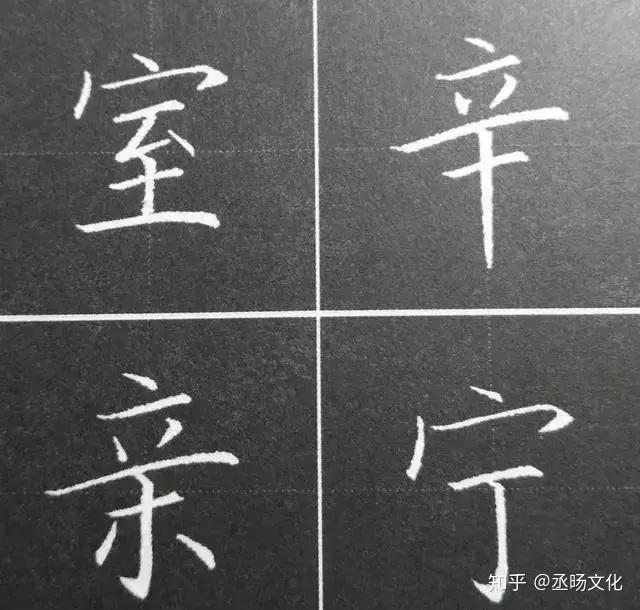 室 辛
亲 宁
知乎 @丞旸文化